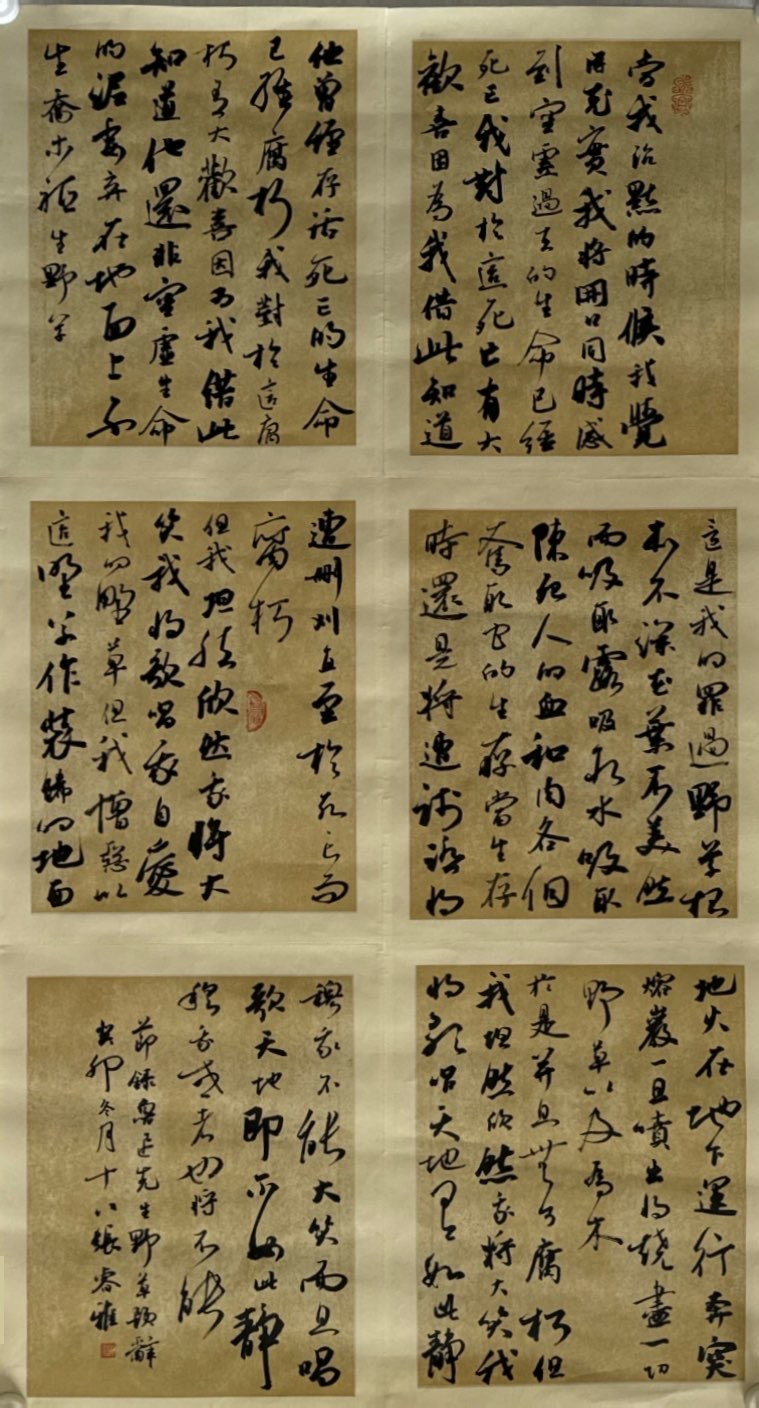 當我沈默的時候我覺
得充實我將開口同時感
到空靈過去的生命已經
死亡我對於這死亡有大
歡喜因為我借此知道
他曾經存活死亡的生命
已經腐朽我對於這腐
朽有大歡喜因為我借此
知道他還非空虛生命
的泥委弃在地面上不
生喬木祗生野草
這是我的罪過野草根
本不深花葉不美然
而吸取露吸取水吸取
陳死人的血和肉各個
奪取它的生存當生存
時還是將遭踐踏將
遭刪刈直至於死亡而
腐朽
但我坦然欣然我將大
笑我將歌唱我自愛
我的野草但我憎惡以
這野草作裝飾的地面
地火在地下運行奔突
熔巖一旦噴出將燒盡一切
野草以及喬木
於是并且無可腐朽但
我坦然欣然我將大笑我
將歌唱天地有如此靜
穆我不能大笑而且唱
歌天地即不如此靜
穆我或者也將不能
節録魯迅先生野草題辭
癸卯冬月十八張睿雅